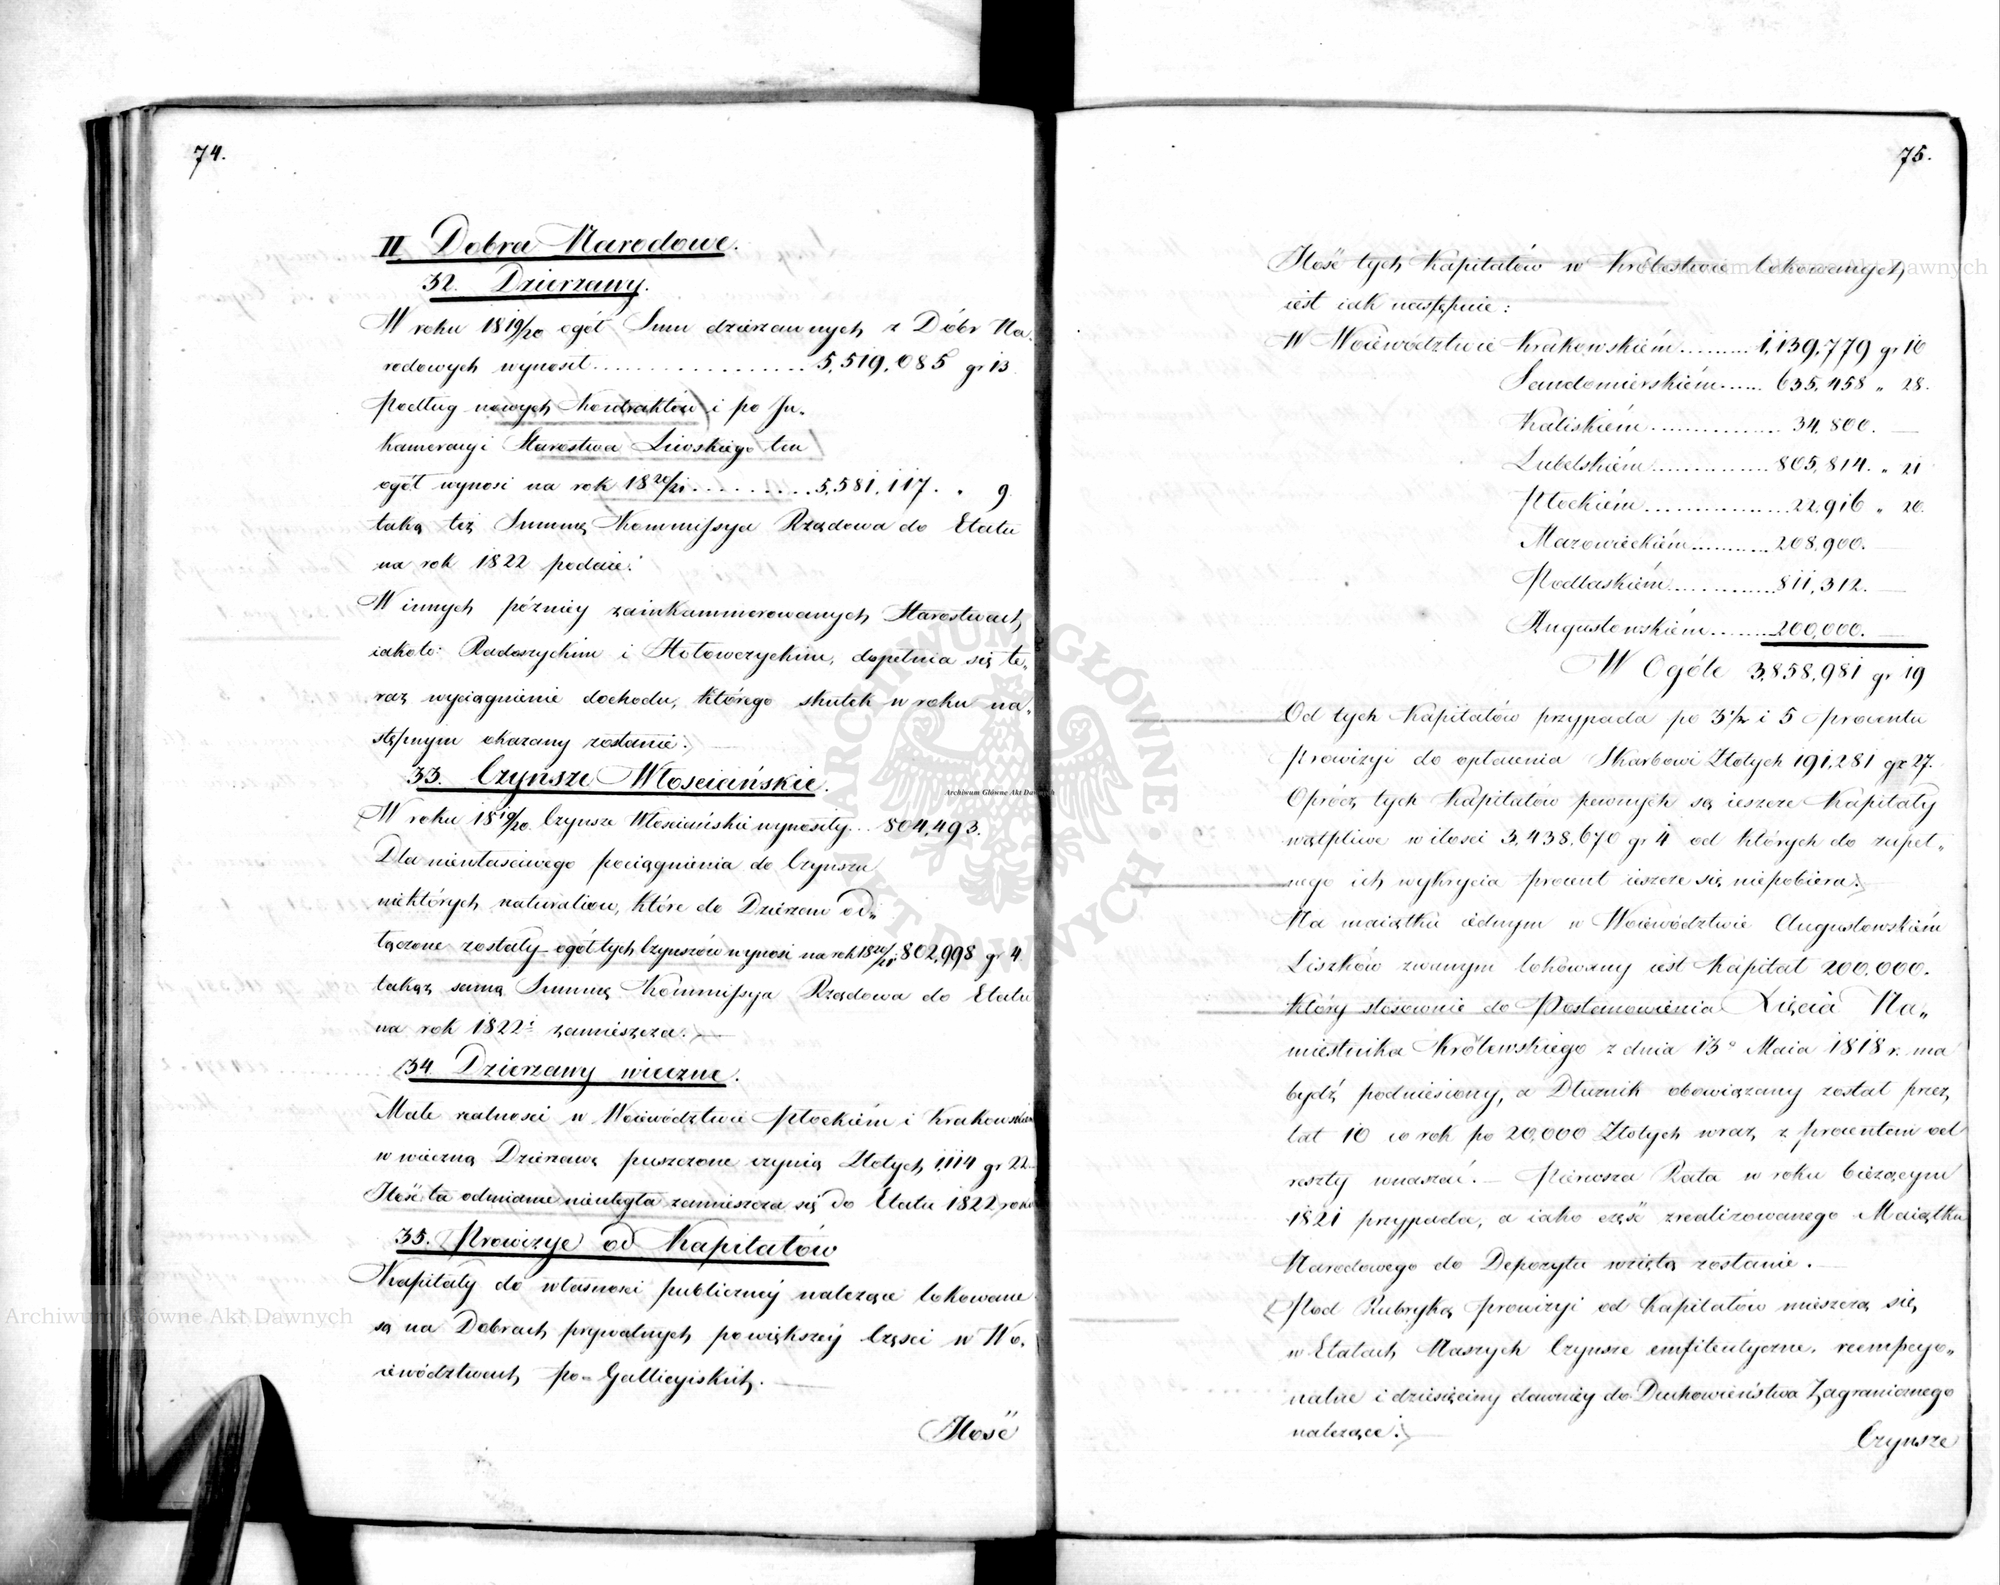 74.
II. Dobra Narodowe.
32. Dzierżawy.
W roku 18 19/20 ogół Summ dzierżawnych z Dóbr Na-
rodowych wynosił.................. 5,519,085 gr 13
Podług nowych Kontraktów i po In-
kameracyi Starostwa Liwskiego ten
ogół wynosi na rok 18 20/21.......... 5,581,117. „ 9
taką też Summę Kommissya Rządowa do Etatu
na rok 1822 podaie.
W innych późniey zainkammerowanych Starostwach
iakoto: Radoszyckim i Stotowczyckim, dopełnia się te-
raz wyciągnienie dochodu, którego skutek w roku na-
stępnym okazany zostanie.
33. Czynsze Włosciańskie.
W roku 18 19/20 Czynsze Włosciańskie wynosiły... 804,493.
Dla niewłasciwego pociągnienia do Czynszu
niektórych naturaliow, które do Dzierzaw od-
łączone zostały ogół tych Czynszów wynosi na rok 18 20/21 802,998 gr 4
takąż samą Summę Kommissya Rządowa do Etatu
na rok 1822 zamieszcza.
34. Dzierżawy wieczne.
Małe realnosci w Woiewództwie Płockiém i Krakowskiém
w wieczną Dzierzawę puszczone czynią Złotych 1,114 gr 22.
Ilość ta odmianie nieuległa zamieszcza się do Etatu 1822 roku
35. Prowizye od Kapitałów
Kapitały do własnosci publiczney należące lokowane
są na Dobrach prywatnych po większey Częsci w Wo-
iewództwach po-Gallicyiskich.
Ilość
75.
Ilość tych Kapitałów w Królestwie lokowanych
iest iak następuie:
W Woiewództwie Krakowskiém......... 1,139,779 gr 10
Sandomierskiém...... 635,458 „ 28.
Kaliskiém.............. 34,800. —
Lubelskiém............. 805,814. „ 21
Płockiém................ 22,916 „ 20.
Mazowieckiém.......... 208,900. —
Podlaskiém............ 811,312. —
Augustowskiém........ 200,000. —
W Ogóle 3,858,981 gr 19
Od tych Kapitałów przypada po 3 1/2 i 5 Procentu
Prowizyi do opłacenia Skarbowi Złotych 191,281 gr 27.
Oprócz tych Kapitałów pewnych są ieszcze Kapitały
wątpliwe w ilosci 3,438,670 gr 4 od których do zupeł-
nego ich wykrycia procent ieszcze się niepobiera.
Na maiątku iednym w Woiewództwie Augustowskiém
Liszków zwanym lokowany iest Kapitał 200,000.
który stosownie do Postanowienia Xięcia Na-
miestnika Królewskiego z dnia 13o Maia 1818 r. ma
bydź podniesiony, a Dłuznik obowiązany został przez
lat 10 co rok po 20,000 Złotych wraz z procentem od
reszty wnaszać. — Pierwsza Rata w roku bieżącym
1821 przypada, a iako część zrealizowanego Maiątku
Narodowego do Depozytu wziętą zostanie. —
Pod Rubryką prowizyi od Kapitałów mieszczą się
w Etatach Naszych Czynsze emfiteutyczne, reempcyo-
nalne i dziesięciny dawniey do Duchowieństwa Zagranicznego
należące.
Czynsze
Archiwum Główne Akt Dawnych
ARCHIWUM GŁÓWNE AKT DAWNYCH
Archiwum Główne Akt Dawnych
Archiwum Główne Akt Dawnych